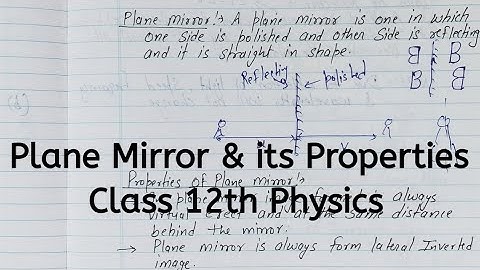 Plane mirror:→ A plane mirror is one in which
one side is polished and other side is reflecting
and it is straight in shape.
Reflecting polished.
B B
B B
u v
Plane Mirror & its Properties
Class 12th Physics
Properties of Plane mirror:→
plane is always
virtual erect and at the same distance
behind the mirror.
→ Plane mirror is always form lateral Inverted
image.